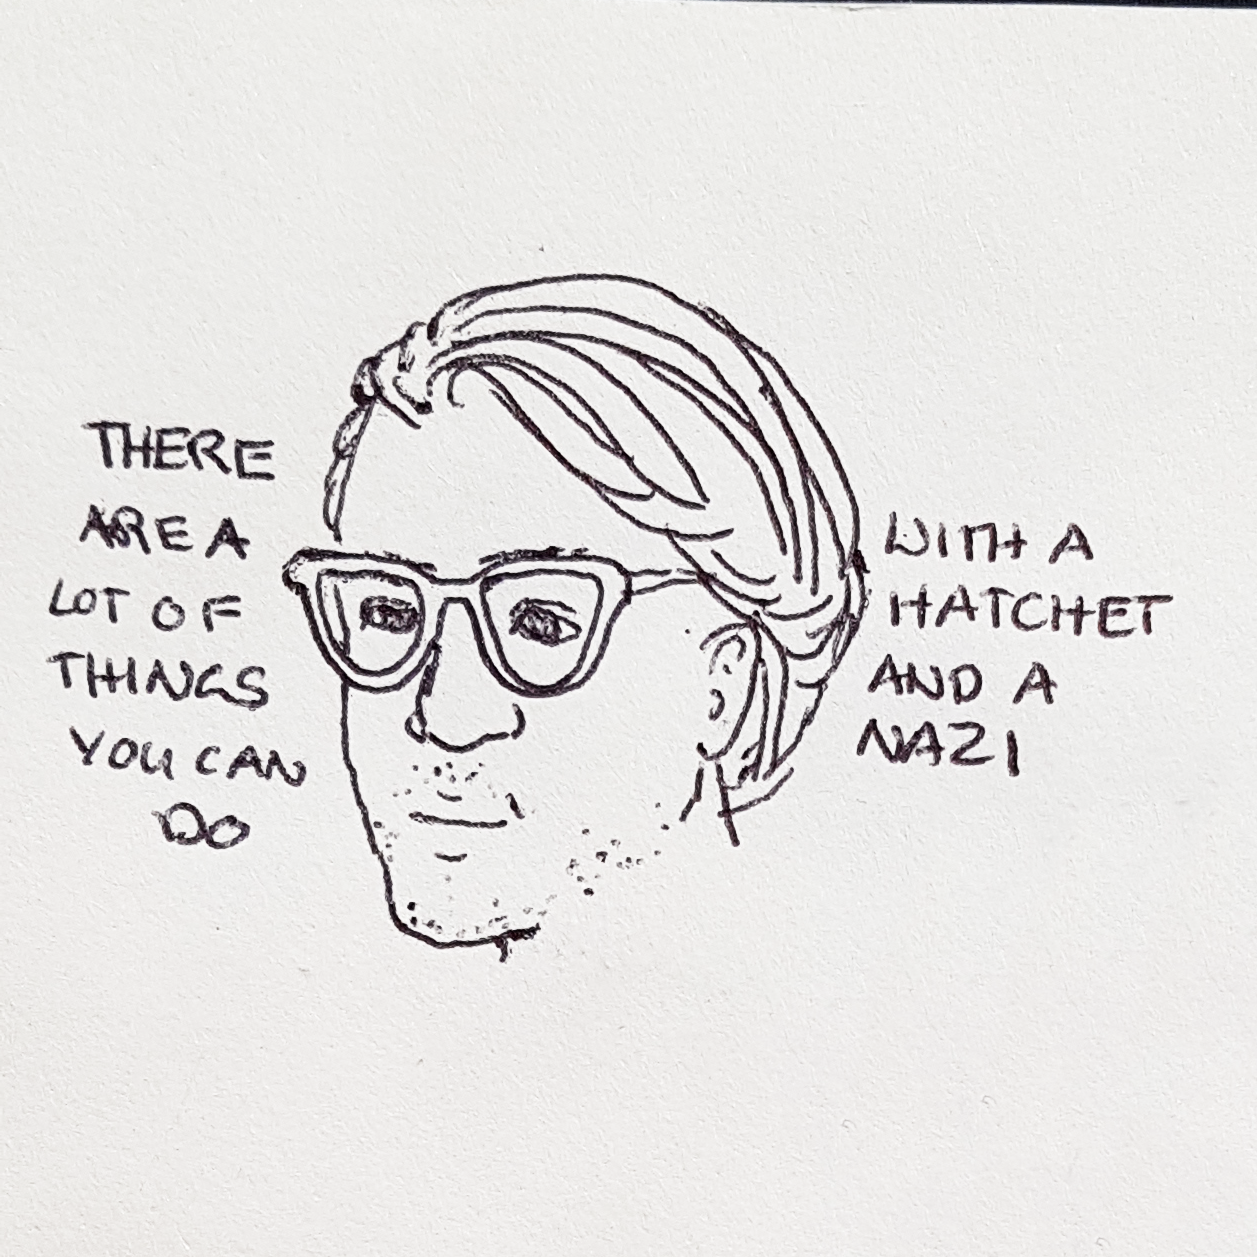 THERE
ARE A
LOT OF
THINGS
YOU CAN
DO
WITH A
HATCHET
AND A
NAZI